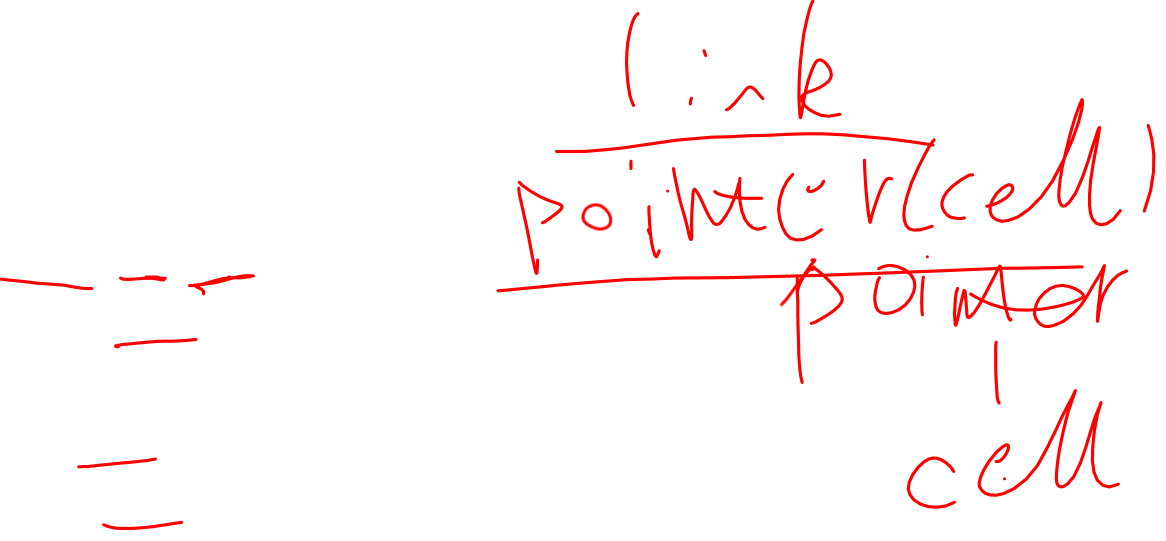 link
pointer(cell)
pointer
cell